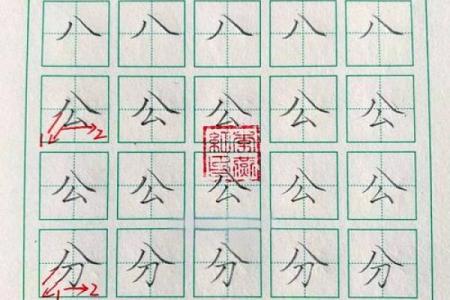 八 八 八 八 八
公 公 公 公 公
1 2
公 公 公 公 公
分 分 分 分 分
1 2